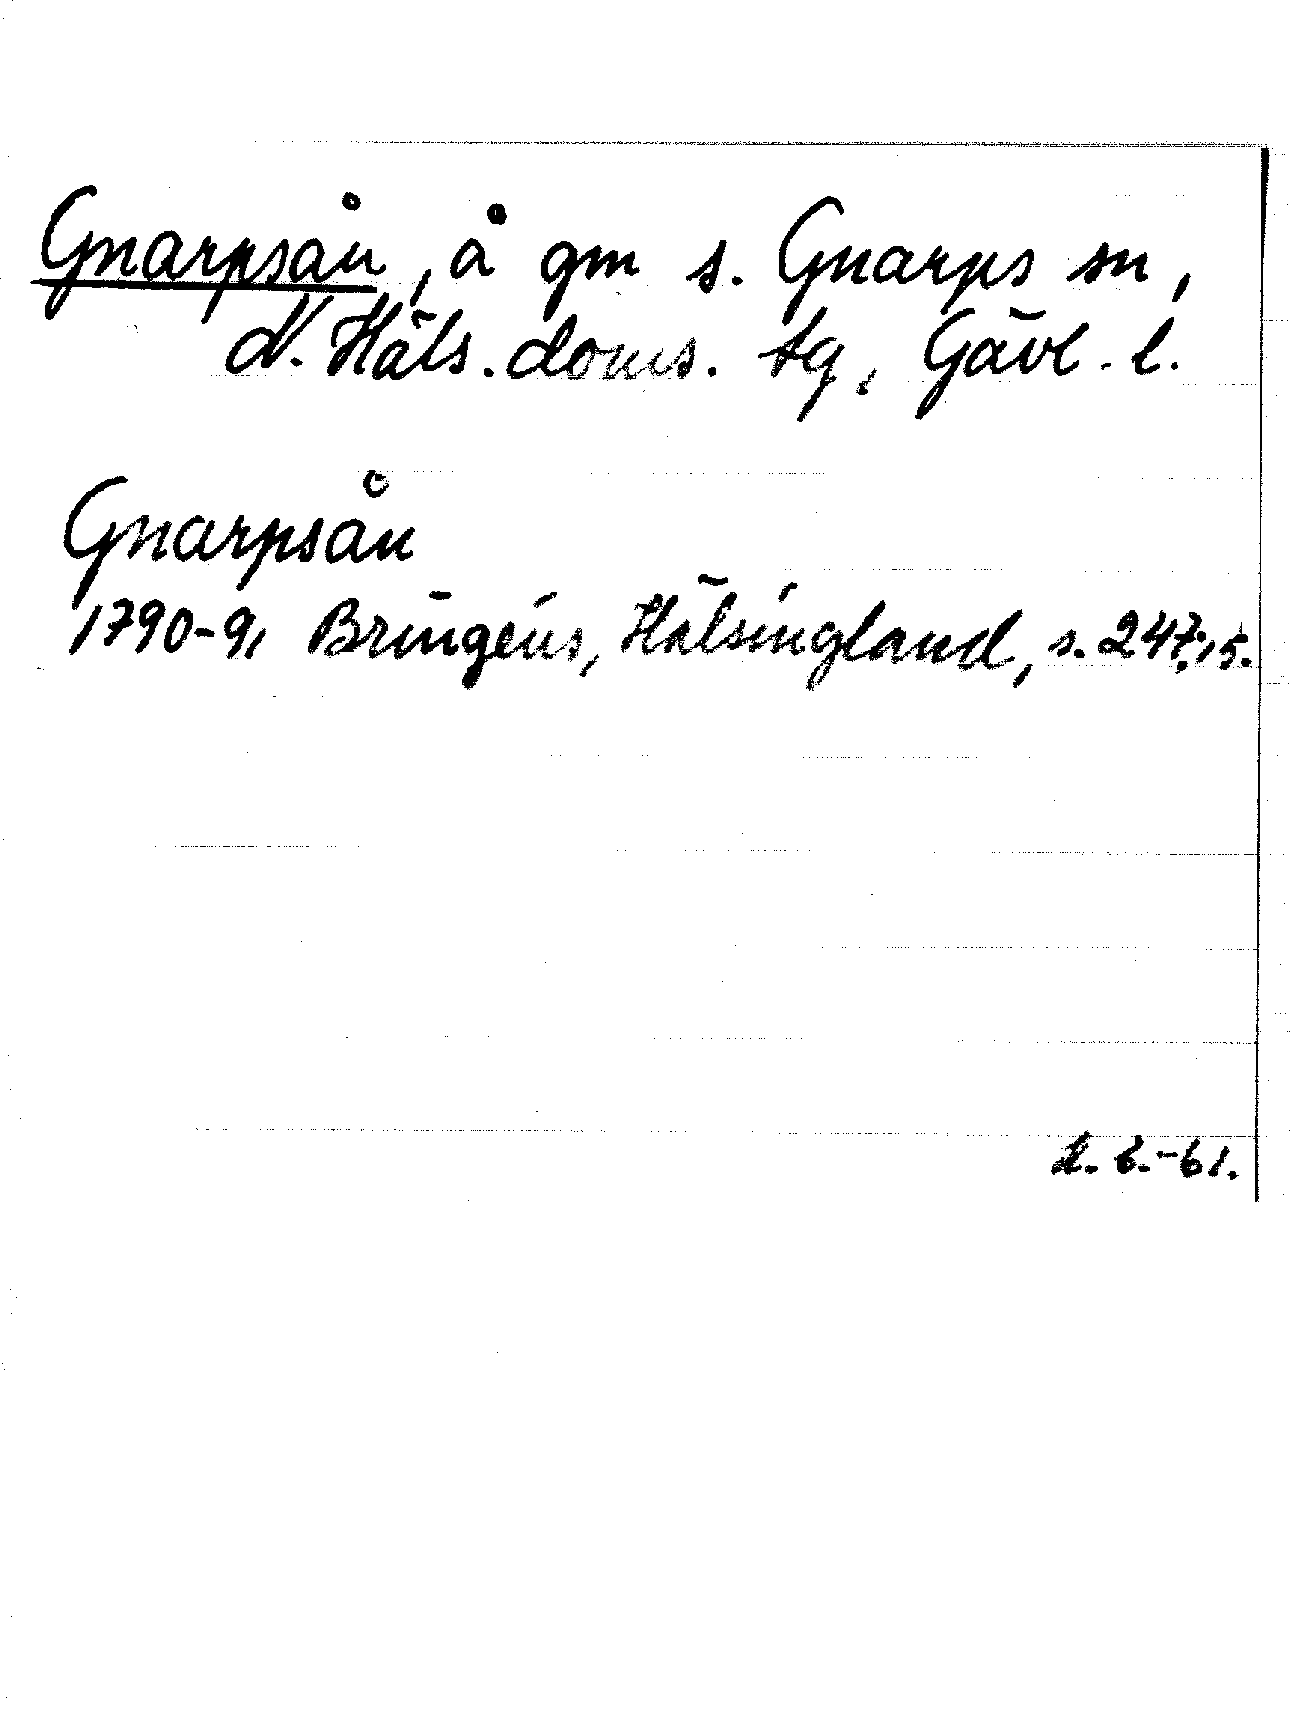 Gnarpsån, å gm s. Gnarps sn,
N. Häls. doms. tg, Gävl. l.
Gnarpsån
1790-91 Bringéus, Hälsingland, s. 247:15.
L. E. -61.